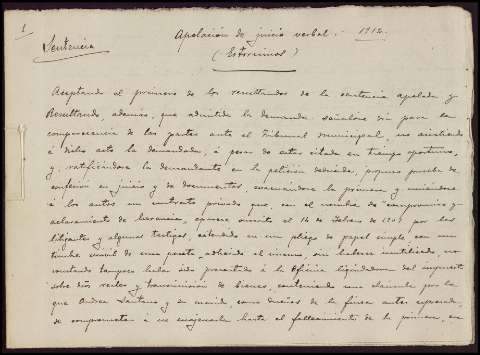 1
Apelación de juicio verbal.- 1912.
Sentencia
(Estorninos)
Aceptando el primero de los resultandos de la sentencia apelada y
Resultando, además, que admitida la demanda señalose dia para la
comparecencia de las partes ante el Tribunal municipal, no asistiendo
á dicho acto la demandada, á pesar de estar citada en tiempo oportuno,
y, ratificándose la demandante en la petición deducida, propuso prueba de
confesión en juicio y de documentos, evacuándose la primera y uniéndose
á los autos un contrato privado que, con el nombre de compromiso y
aclaramiento de herencia, aparece suscrito el 14 de Febrero de 1907 por los
litigantes y algunos testigos, extendido en un pliego de papel simple con un
timbre movil de una peseta adherido al mismo, sin haberse inutilizado, no
constando tampoco haber sido presentado á la Oficina liquidadora del impuesto
sobre dros reales y transmisión de bienes, conteniendo una cláusula por la
que Andrea Santos y su marido, como dueños de la finca antes expresada,
se comprometen á no enajenarla hasta el fallecimiento de la primera, en